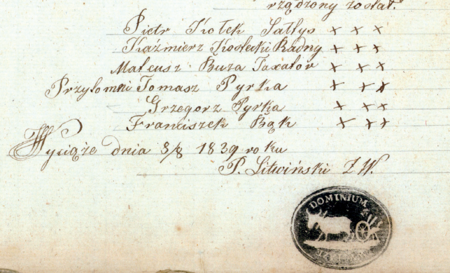 rządzony został.
Piotr Ziołek Sołtys × × ×
Kaźmierz Kosłecki Radny × × ×
Mateusz Buza Taxator × × ×
Przytomni Tomasz Pyrka × × ×
Grzegorz Pyrka × × ×
Franciszek Bąk × × ×
Wyciąże dnia 3/8 1839 roku
P. Litwiński Z.W.
DOMINIUM